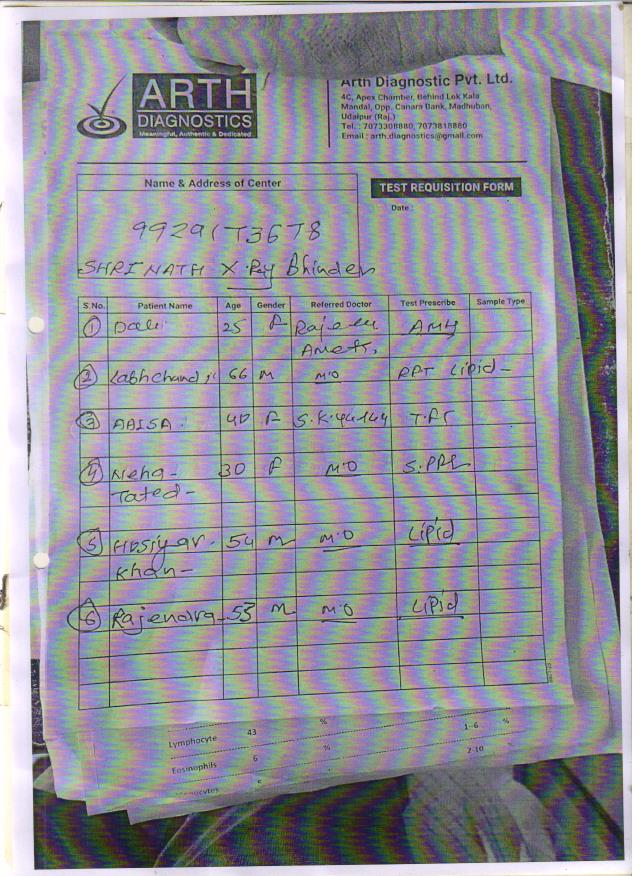 ARTH
DIAGNOSTICS
Meaningful, Authentic & Dedicated
Arth Diagnostic Pvt. Ltd.
4C, Apex Chamber, Behind Lok Kala
Mandal, Opp. Canara Bank, Madhuban,
Udaipur (Raj.)
Tel. : 7073308880, 7073818880
Email : arth.diagnostics@gmail.com
Name & Address of Center
TEST REQUISITION FORM
Date :
SHRINATH X-Ray Bhinder
S.No. Patient Name Age Gender Referred Doctor Test Prescribe Sample Type
1 25 F AMH
2 Labhchand 66 M M.O Lipid -
3 AAISA F S.K.
4 Neha - 30 F M.O S.PRL
Tated -
5 54 M M.O Lipid
Khan -
6 Rajendra - 53 M M.O Lipid
Lymphocyte 43 %
Eosinophils 6 % 1-6 %
2-10 %